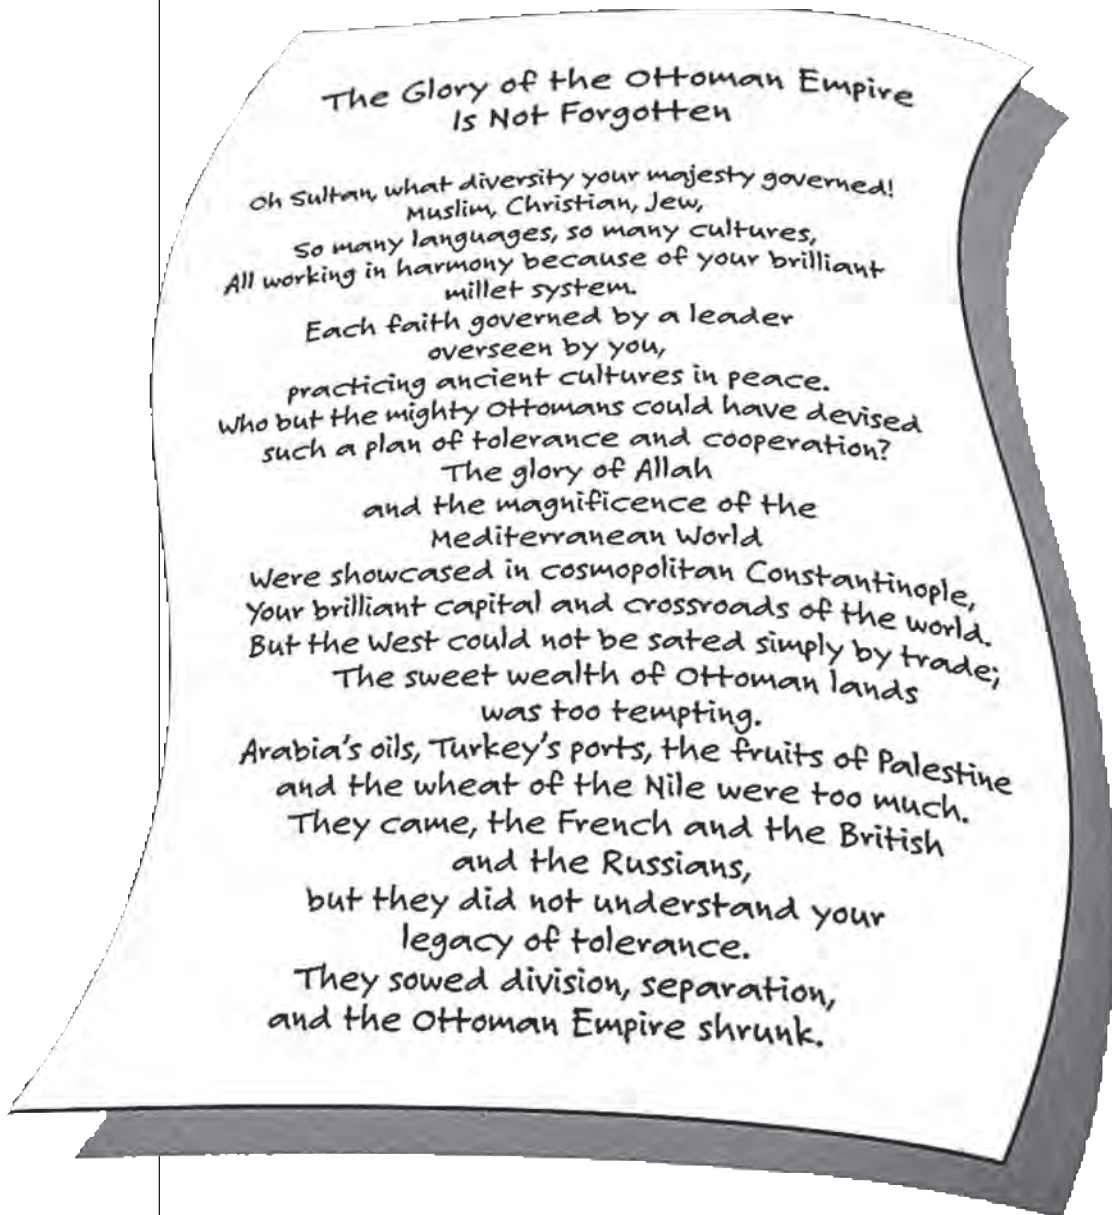 The Glory of the Ottoman Empire
Is Not Forgotten
Oh Sultan, what diversity your majesty governed!
Muslim, Christian, Jew,
So many languages, so many cultures,
All working in harmony because of your brilliant
millet system.
Each faith governed by a leader
overseen by you,
practicing ancient cultures in peace.
Who but the mighty Ottomans could have devised
such a plan of tolerance and cooperation?
The glory of Allah
and the magnificence of the
Mediterranean World
Were showcased in cosmopolitan Constantinople,
Your brilliant capital and crossroads of the world.
But the West could not be sated simply by trade;
The sweet wealth of Ottoman lands
was too tempting.
Arabia's oils, Turkey's ports, the fruits of Palestine
and the wheat of the Nile were too much.
They came, the French and the British
and the Russians,
but they did not understand your
legacy of tolerance.
They sowed division, separation,
and the Ottoman Empire shrunk.